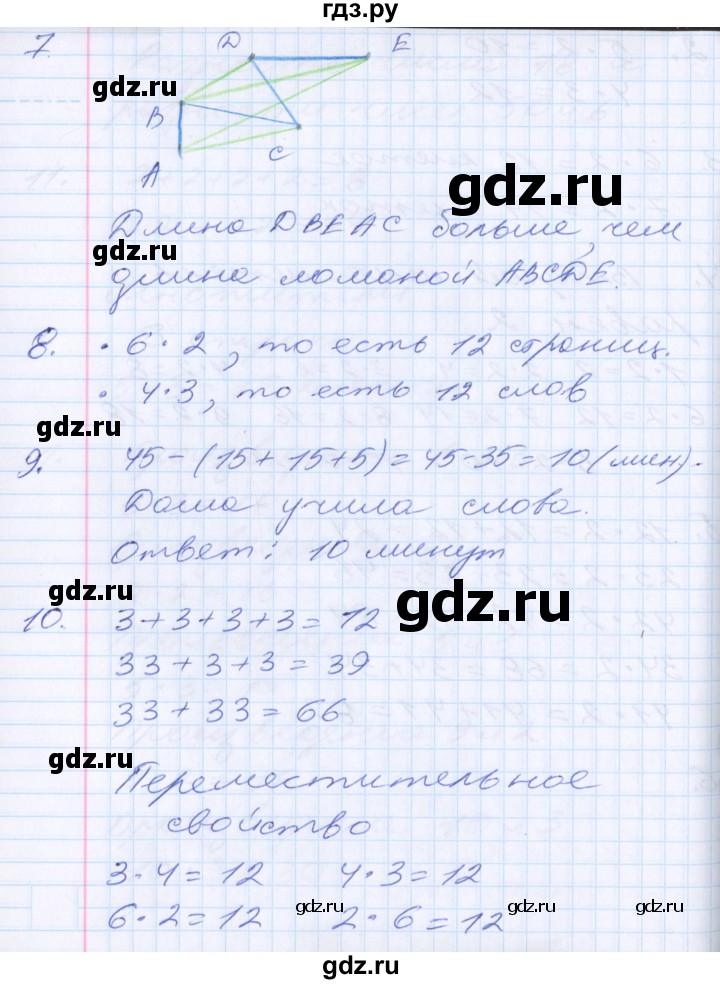 гдз.ру
7.
D E
gdz.ru
B
C
A
gdz.ru
Длина DBEAC больше, чем
gdz.ru
длина ломаной ABCDE.
8. • 6·2, то есть 12 страниц.
• 4·3, то есть 12 слов
gdz.ru
9. 45-(15+15+5)=45-35=10(мин).
Даша учила слова.
Ответ: 10 минут
gdz.ru
gdz.ru
10. 3+3+3+3=12
33+3+3=39
33+33=66
gdz.ru
Переместительное
свойство
gdz.ru
3·4=12 4·3=12
6·2=12 2·6=12
gdz.ru gdz.ru gdz.ru gdz.ru
gdz.ru